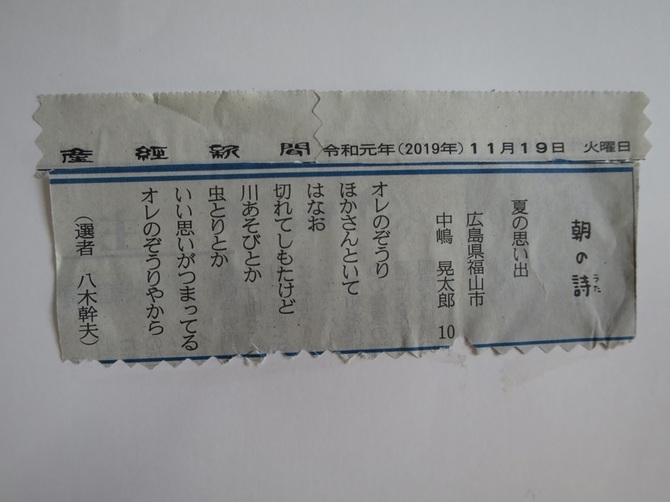 産經新聞 令和元年(2019年)11月19日 火曜日
朝の詩
うた
夏の思い出
広島県福山市
中嶋 晃太郎 10
オレのぞうり
ほかさんといて
はなお
切れてしもたけど
川あそびとか
虫とりとか
いい思いがつまってる
オレのぞうりやから
(選者 八木幹夫)